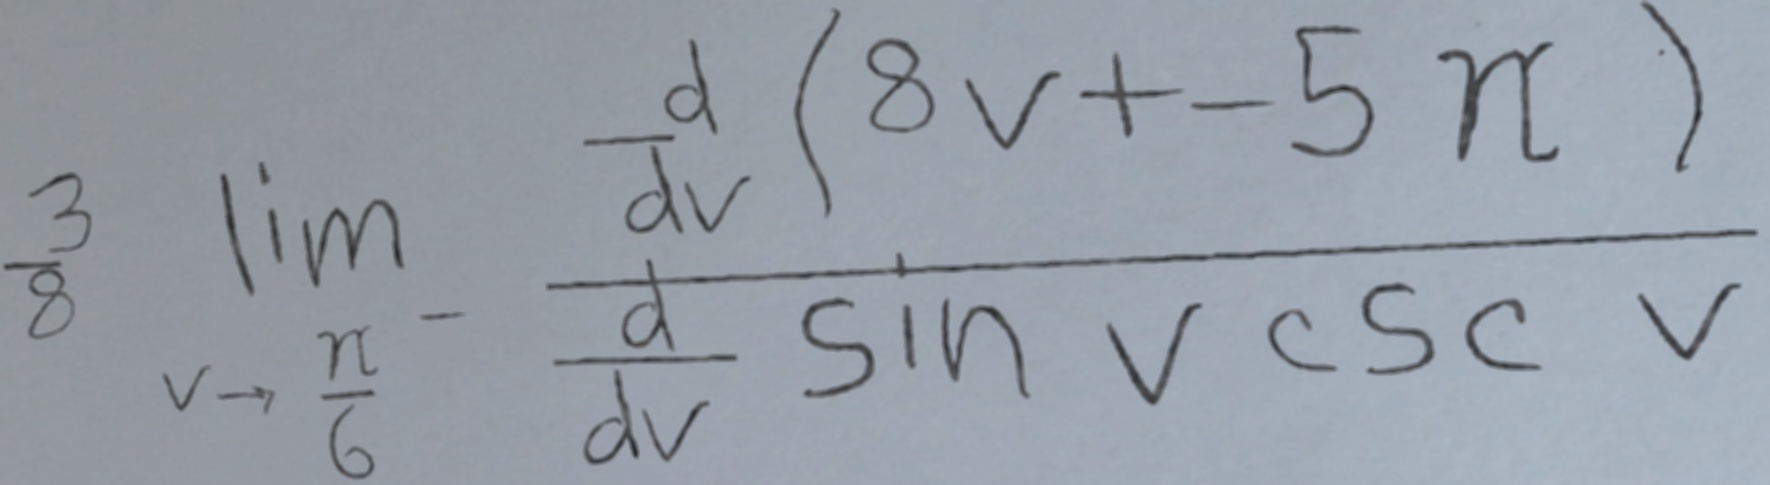 \frac{3}{8} \lim_{v \to \frac{\pi}{6}^{-}} \frac{\frac{d}{dv}(8v+-5\pi)}{\frac{d}{dv} \sin v \csc v}